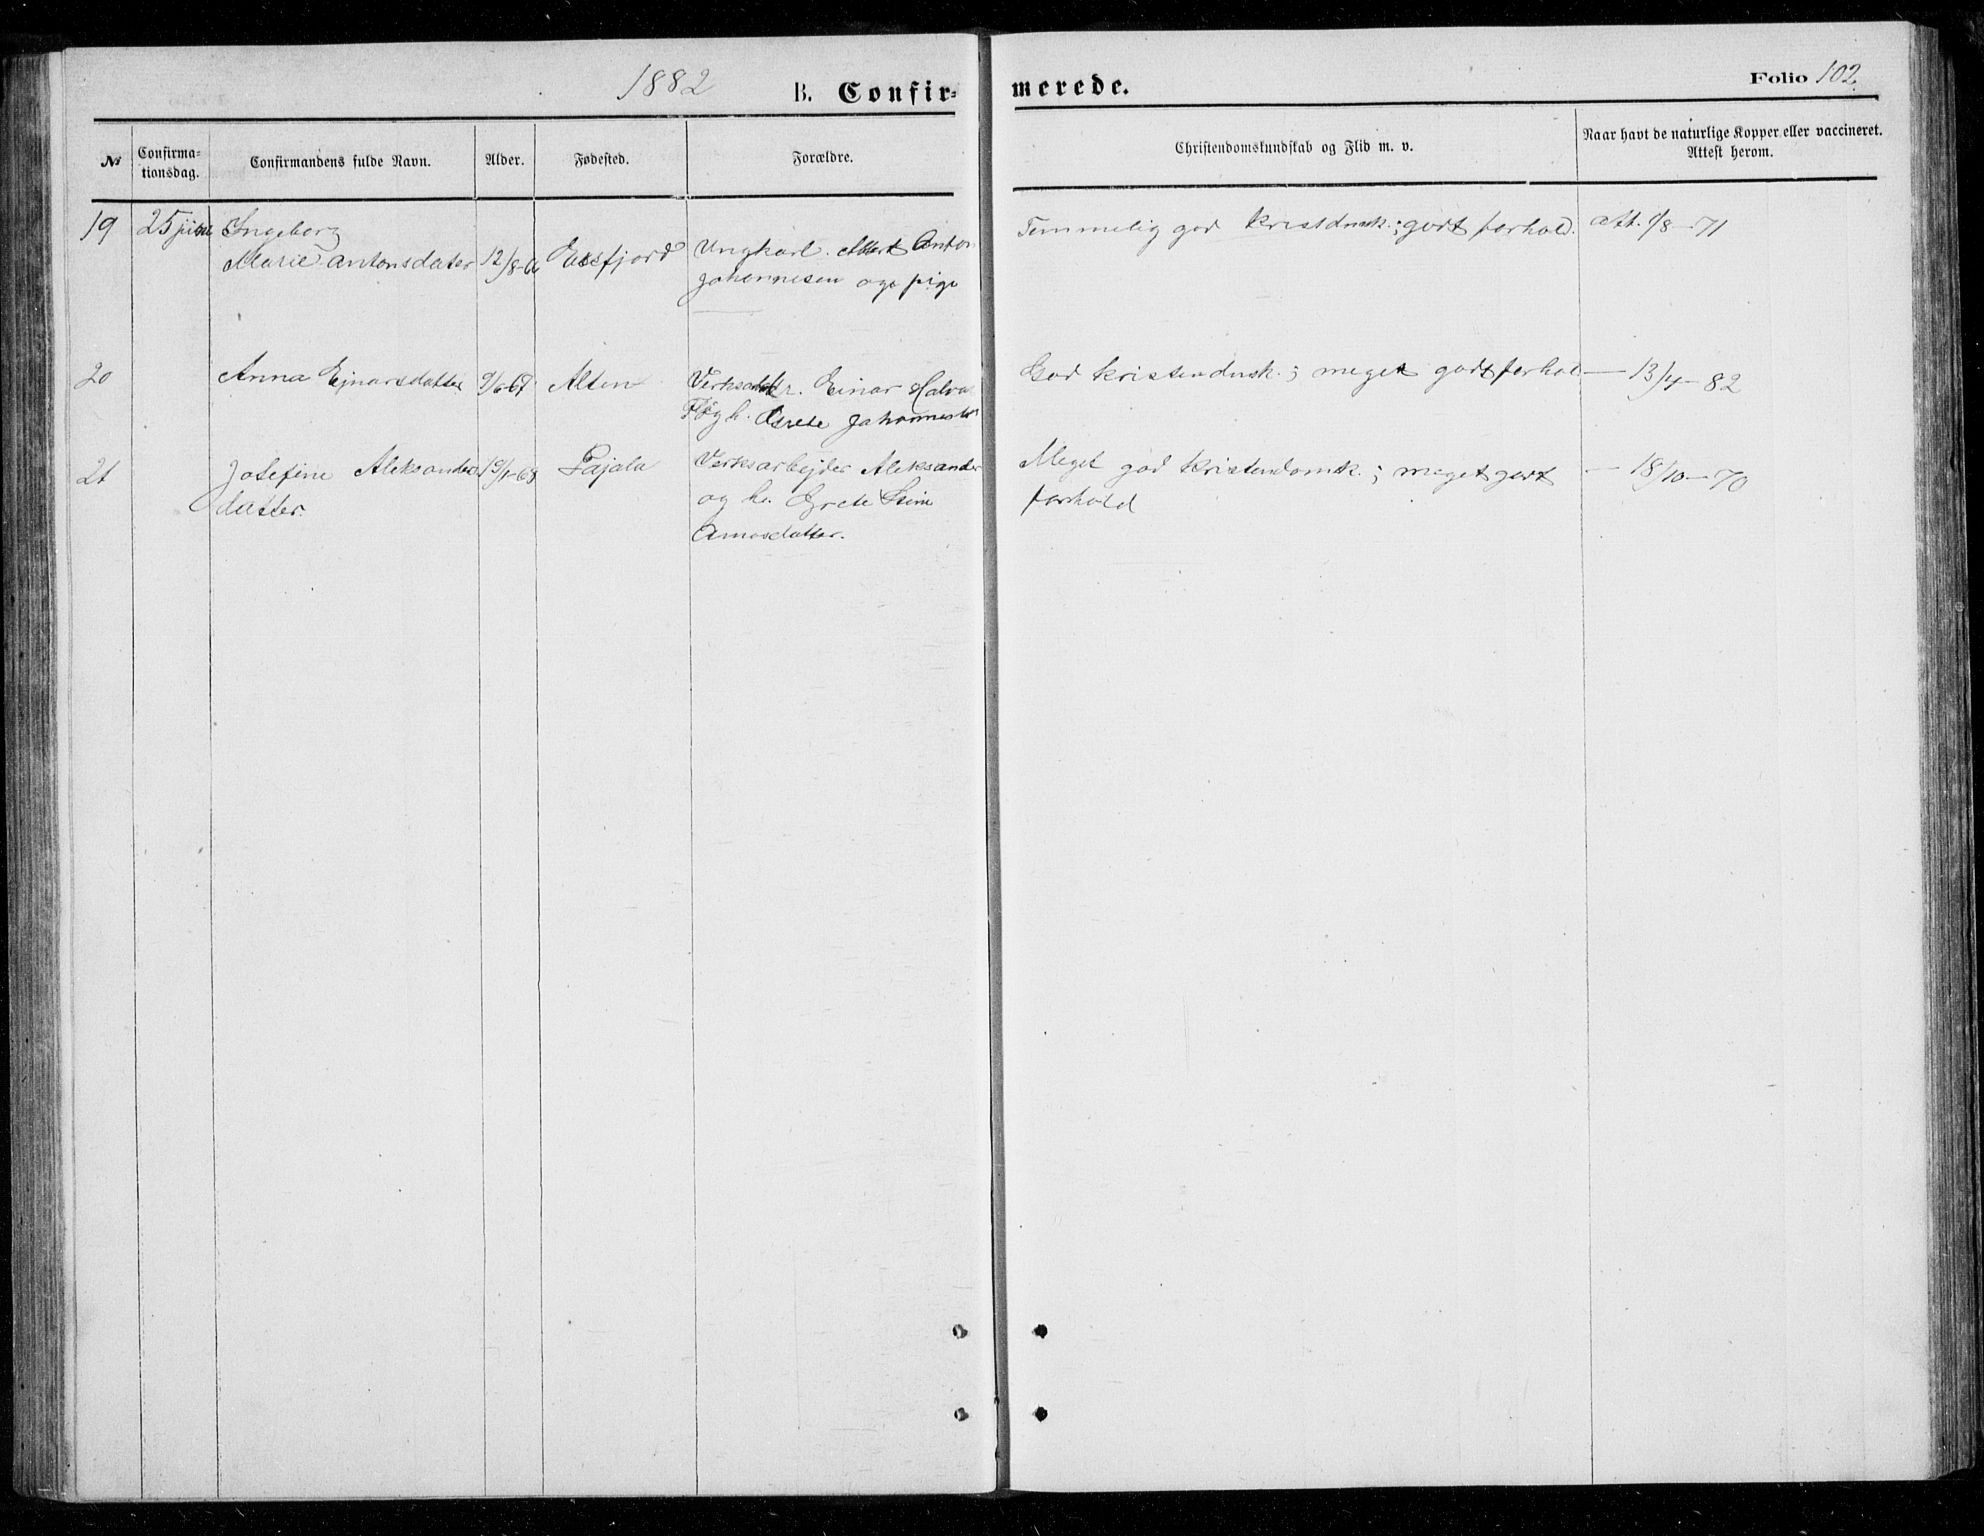 1882 B. Confir=
merede. Folio 102.
No Confirma=
tionsdag. Confirmandens fulde Navn. Alder. Fødested. Forældre.
Christendomskundskab og Flid m. v. Naar havt de naturlige Kopper eller vaccineret.
Attest herom.
19 25 juni Ingeborg
Marie Antonsdater 12/8-6 Ungkarl Anton
Johannesen og pige
Temmelig god kristdmsk.; godt forhold. att. /8-71
20 Anna Ejnarsdatter 9/6-67 Alten Einar Halvo
h. Grete Johannesd
God kristendmsk.; meget godt forhol — 13/4-82
21 Josefine Aleksanders
datter. 19/1-68 Pajala Verksarbejder Aleksander
og h. Grete Stine
Amosdatter.
Meget god kristendomsk.; meget godt
forhold — 18/10-70